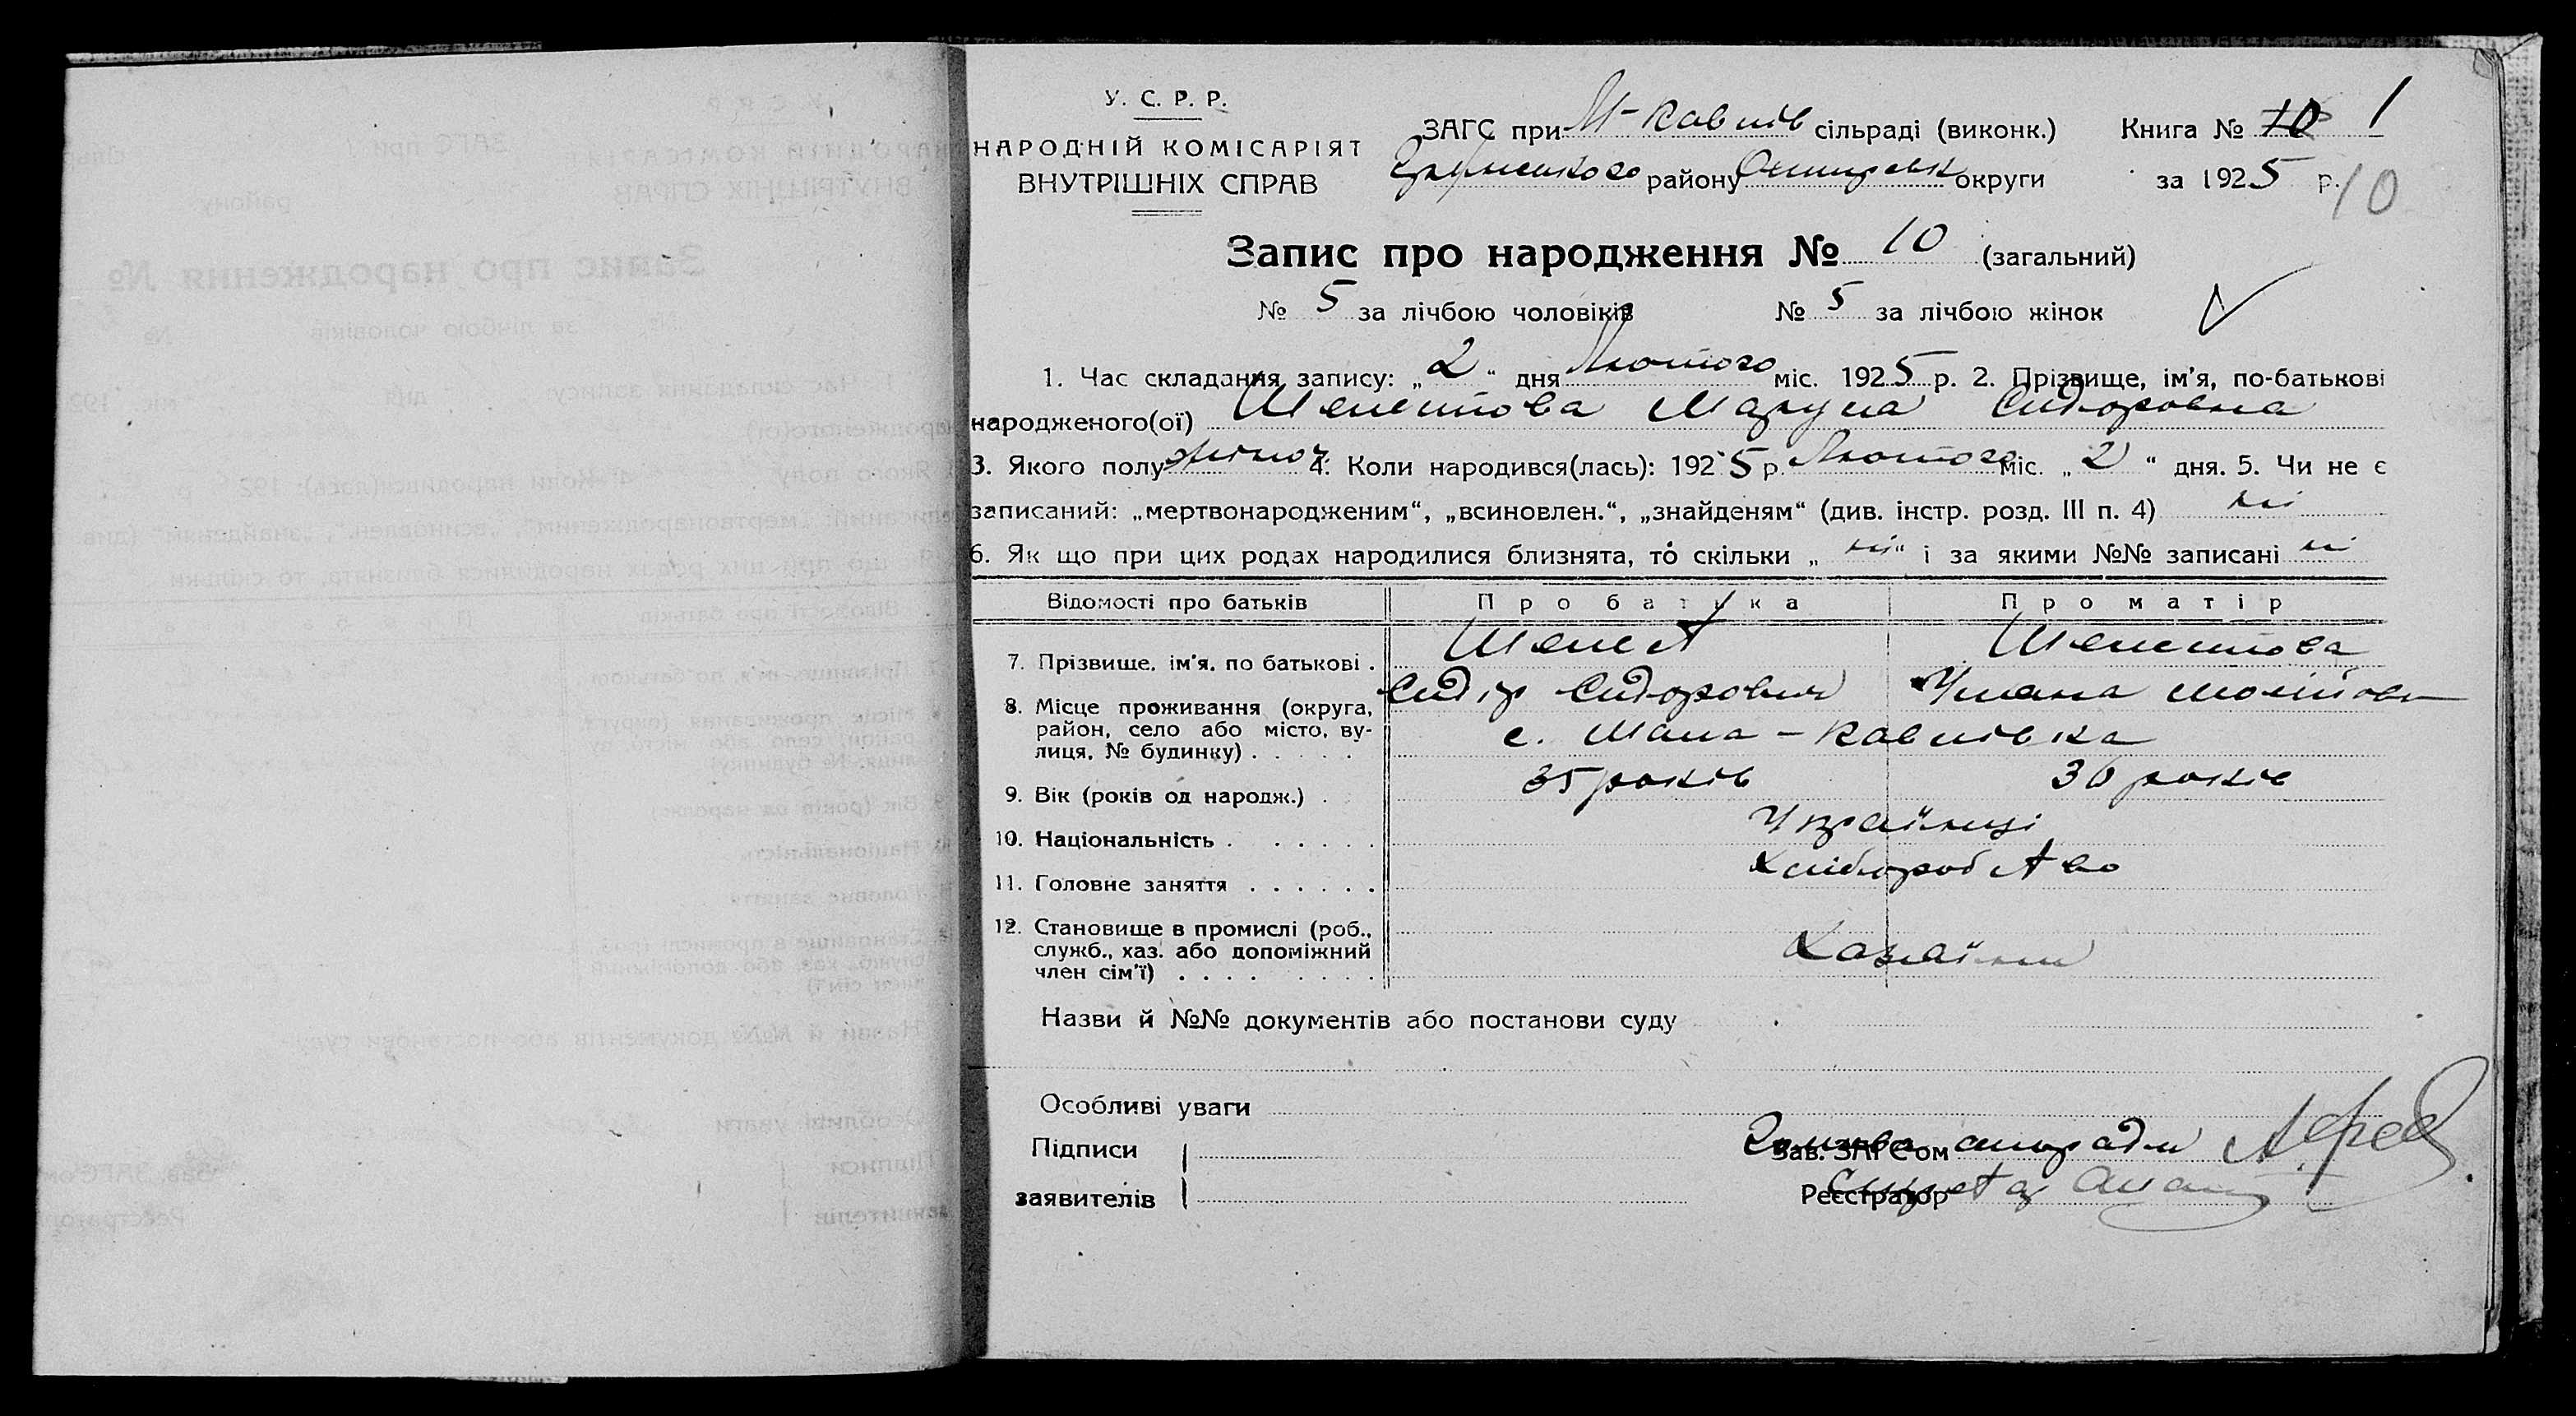 У. С. Р. Р.
НАРОДНІЙ КОМІСАРІЯТ
ВНУТРІШНІХ СПРАВ
ЗАГС при М-Павлів сільраді (виконк.) Книга № 10 1
району округи за 1925 р. 10
Запис про народження № 10 (загальний)
№ 5 за лічбою чоловіків № 5 за лічбою жінок
1. Час складання запису: „2" дня Лютого міс. 1925 р. 2. Прізвище, ім'я, по-батькові
народженого(ої) Шепетова Сидоровна
3. Якого полу жіноч 4. Коли народився(лась): 1925 р. Лютого міс. „2" дня. 5. Чи не є
записаний: „мертвонародженим", „всиновлен.", „знайденям" (див. інстр. розд. III п. 4) ні
6. Як що при цих родах народилися близнята, то скільки „ні" і за якими №№ записані ні
Відомості про батьків Про батька Про матір
7. Прізвище, ім'я, по батькові . Шепетова
Сидір Сидорович
8. Місце проживання (округа,
район, село або місто, ву-
лиця, № будинку) . . . . . с. Мала-Павлівка
9. Вік (років од народж.) . 35 років років
10. Національність . . . . . . Українці
11. Головне заняття . . . . . . Хліборобство
12. Становище в промислі (роб.,
служб., хаз. або допоміжний
член сім'ї) . . . . . . . . Хазяїни
Назви й №№ документів або постанови суду
Особливі уваги
Підписи Зав. ЗАГС'ом
заявителів Реєстратор